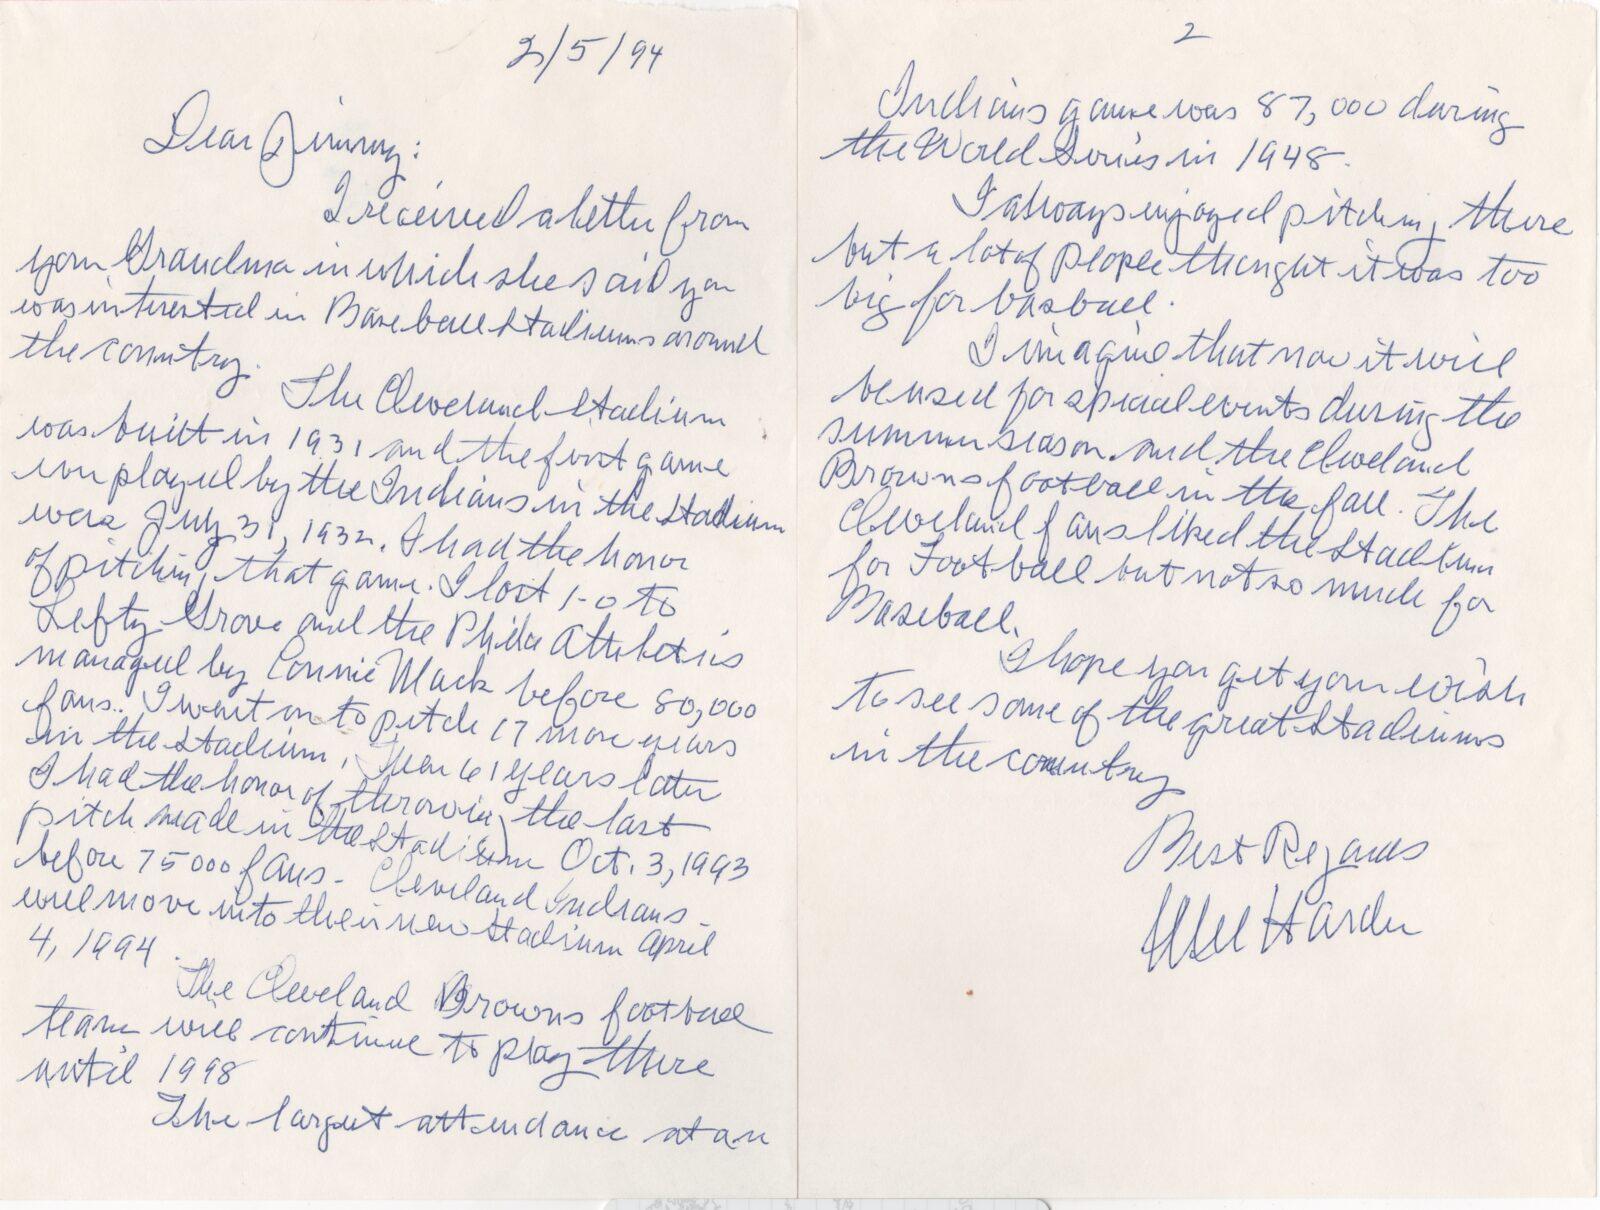 2/5/94
Dear Jimmy:
I received a letter from
your Grandma in which she said you
was interested in Baseball Stadiums around
the country.
The Cleveland Stadium
was built in 1931 and the first game
ever played by the Indians in the Stadium
was July 31, 1932. I had the honor
of pitching that game. I lost 1-0 to
Lefty Grove and the Phila Athletics
managed by Connie Mack before 80,000
fans. I went on to pitch 17 more years
in the Stadium. Then 61 years later
I had the honor of throwing the last
pitch made in the Stadium Oct. 3, 1993
before 75000 fans - Cleveland Indians -
will move into their new Stadium April
4, 1994.
The Cleveland Browns football
team will continue to play there
until 1998
The largest attendance at an
2
Indians game was 87,000 during
the World Series in 1948.
I always enjoyed pitching there
but a lot of people thought it was too
big for baseball.
I imagine that now it will
be used for special events during the
summer season and the Cleveland
Browns football in the fall. The
Cleveland fans liked the Stadium
for Football but not so much for
Baseball.
I hope you get your wish
to see some of the great Stadiums
in the country
Best Regards
Mel Harder